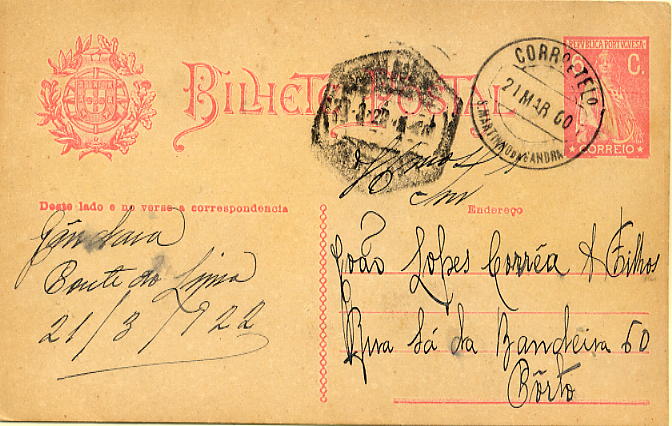 BILHETE POSTAL
REPUBLICA PORTUGUESA
6 C.
CORREIO
CORRO E TELO
21 MAR 60
S. MARTINHO DA GANDRA
Deste lado e no verso a correspondencia
Endereço
Gândara
Ponte do Lima
21/3/922
João Lopes Corrêa & Filhos
Rua Sá da Bandeira 60
Pôrto